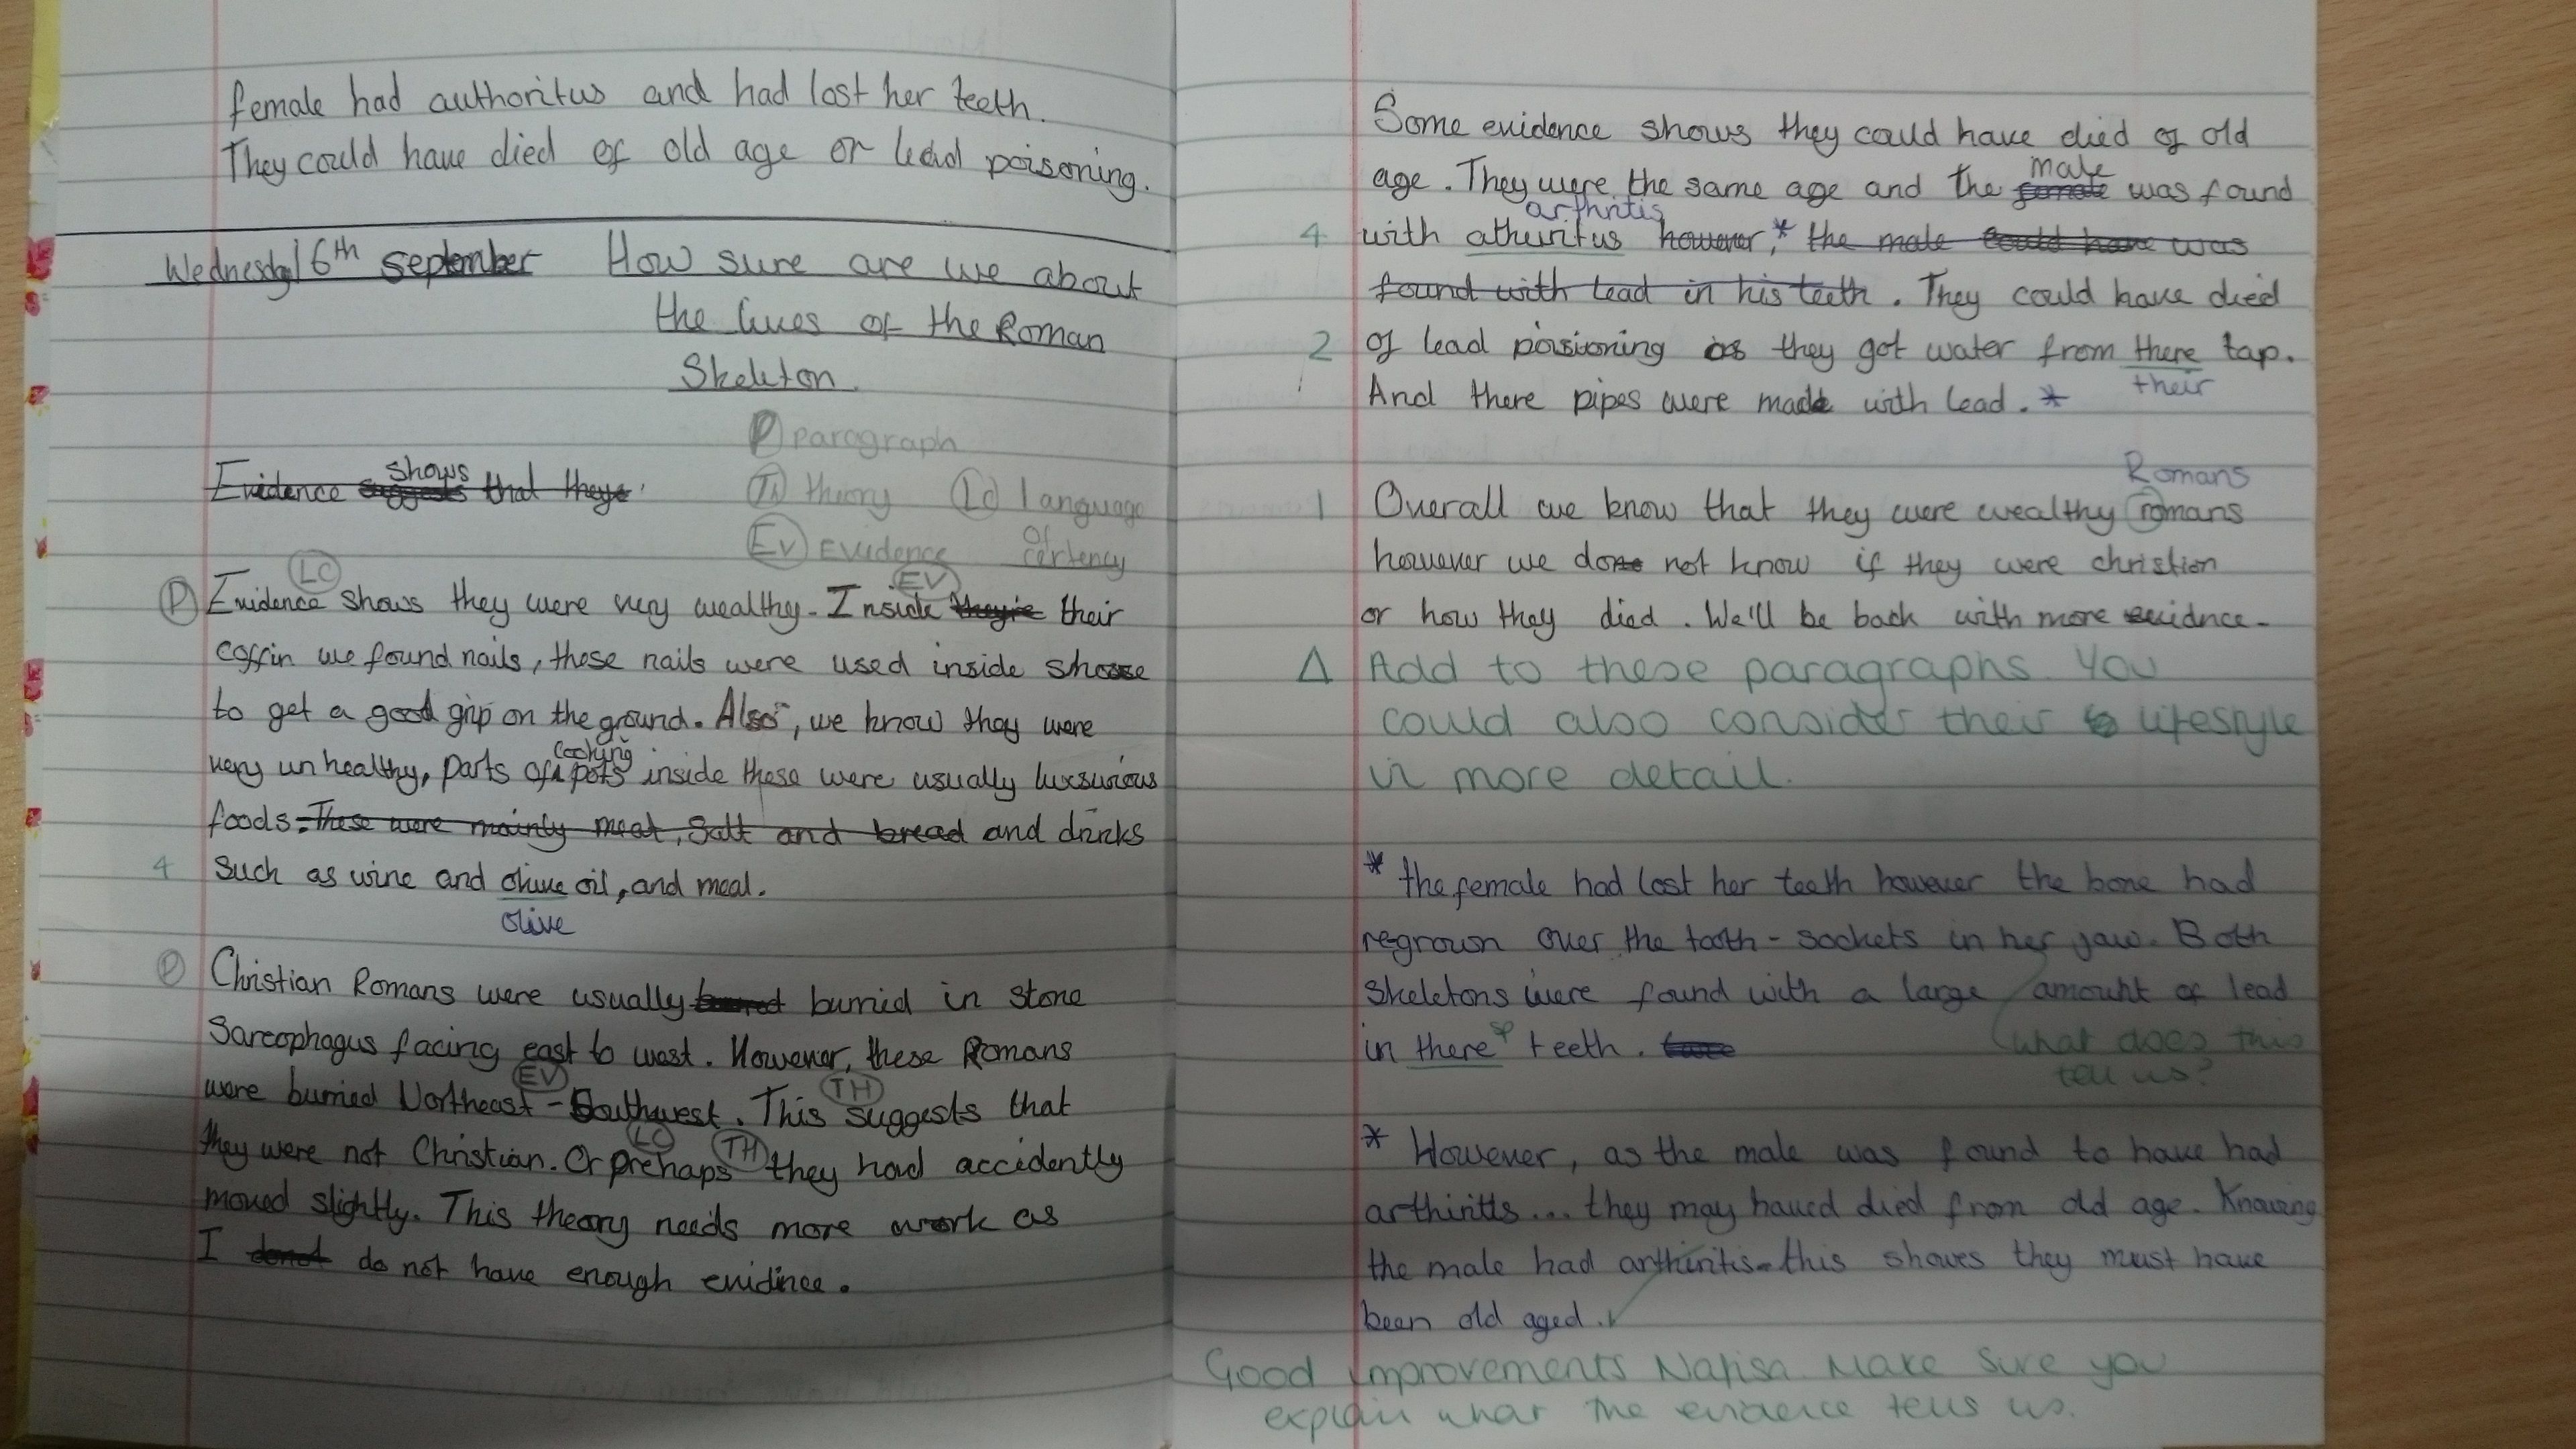 female had authoritus and had lost her teeth.
They could have died of old age or lead poisoning.
Wednesday 6th september How sure are we about
the lives of the Roman
Skeleton
P paragraph
Th theory Lc language
of
Ev Evidence certency
shows
Evidence suggests that they
LC EV
P Evidence shows they were very wealthy. Inside they're their
coffin we found nails, these nails were used inside shoose
to get a good grip on the ground. Also, we know they were
cooking
very unhealthy, parts of pots inside these were usually luxsurious
foods. These were mainly meat, salt and bread and drinks
4 such as wine and ohive oil, and meal.
olive
P Christian Romans were usually burried in stone
Sarcophagus facing east to west. However, these Romans
EV TH
were burried Northeast - Southwest. This suggests that
LC TH
they were not Christian. Or prehaps they had accidently
moved slightly. This theory needs more work as
I donot do not have enough evidince.
Some evidence shows they could have died of old
male
age. They were the same age and the female was found
arthritis
4 with atheuritus however,* the male could have was
found with lead in his teeth. They could have died
2 of lead poisioning as they got water from there tap.
their
And there pipes were made with lead. *
Romans
1 Overall we know that they were wealthy romans
however we done not know if they were christion
or how they died. We'll be back with more evidnce.
Δ Add to these paragraphs. You
could also consider their lifestyle
in more detail.
* the female had lost her teeth however the bone had
regrown over the tooth-sockets in her jaw. Both
skeletons were found with a large amount of lead
sp
in there teeth.
what does this
tell us?
* However, as the male was found to have had
arthirittis... they may haved died from old age. Knowing
the male had arthiritis-this shows they must have
been old aged.
Good improvements Nafisa. Make sure you
explain what the evidence tells us.